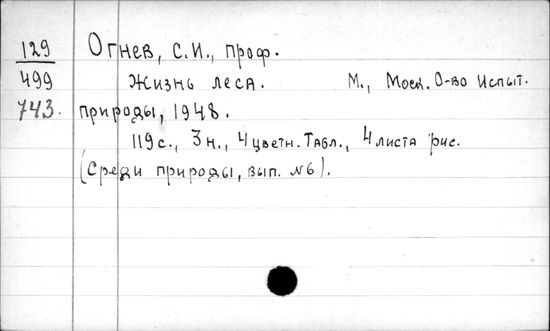 129 Огнев, С.И., проф.
499 Жизнь леса. М., Моск. О-во Испыт.
743. природы, 1948.
119 с., 3 н., 4 цветн. Табл., 4 листа рис.
(Среди природы, вып. №6).